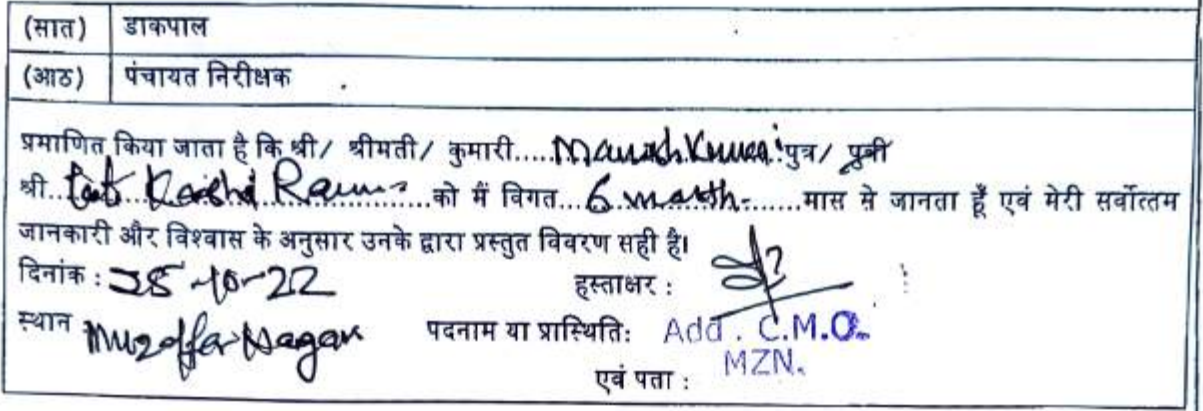 (सात) डाकपाल
(आठ) पंचायत निरीक्षक
प्रमाणित किया जाता है कि श्री/ श्रीमती/ कुमारी.....Manish Kumar पुत्र/ पुत्री
श्री.. Kashi Ram ...को मैं विगत...6 month.......मास से जानता हूँ एवं मेरी सर्वोत्तम
जानकारी और विश्वास के अनुसार उनके द्वारा प्रस्तुत विवरण सही है।
दिनांक : 28-10-22 हस्ताक्षर :
स्थान Muzaffar Nagar पदनाम या प्रास्थितिः Add . C.M.O.
एवं पता : MZN.